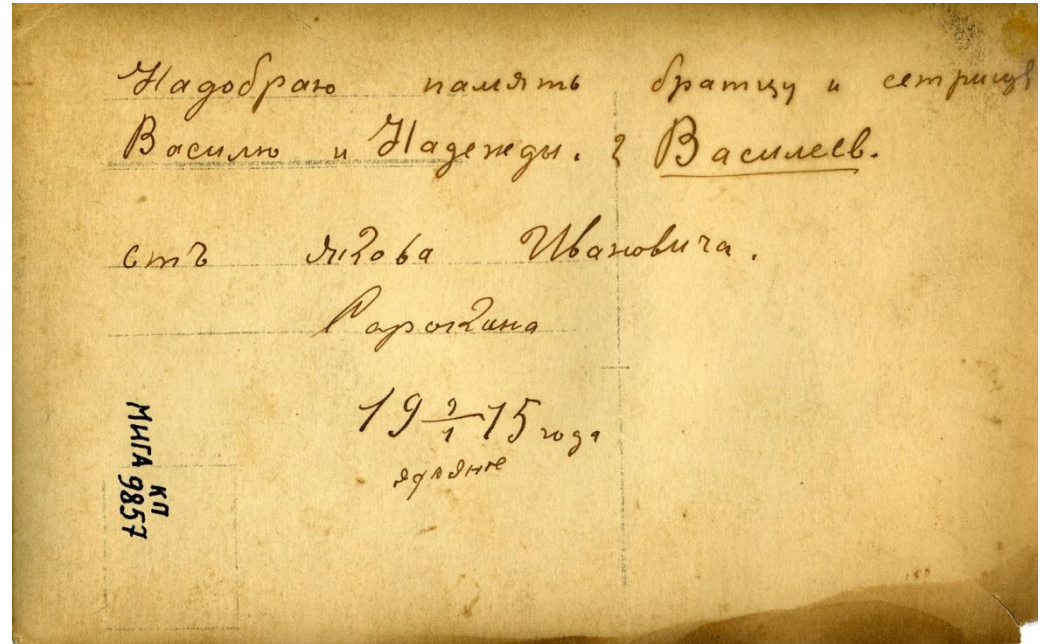 Надобраю память братцу и сетрицы
Василю и Надежды. г Василеев.
отъ Якова Ивановича.
Сарокина
19 2/1 15 года
КП
МИГА 9857